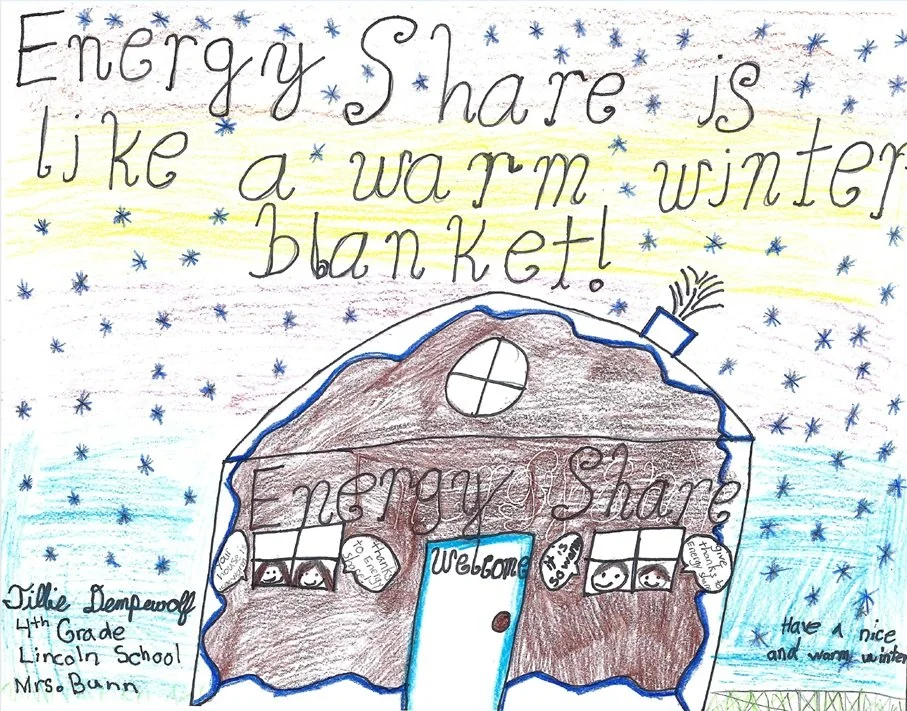 Energy Share is
like a warm winter
blanket!
Energy Share
Welcome
thanks
to Energy
Share
It is
so warm
give
thanks to
Energy Share
Tillie Dempewolf
4th Grade
Lincoln School
Mrs. Bunn
Have a nice
and warm winter